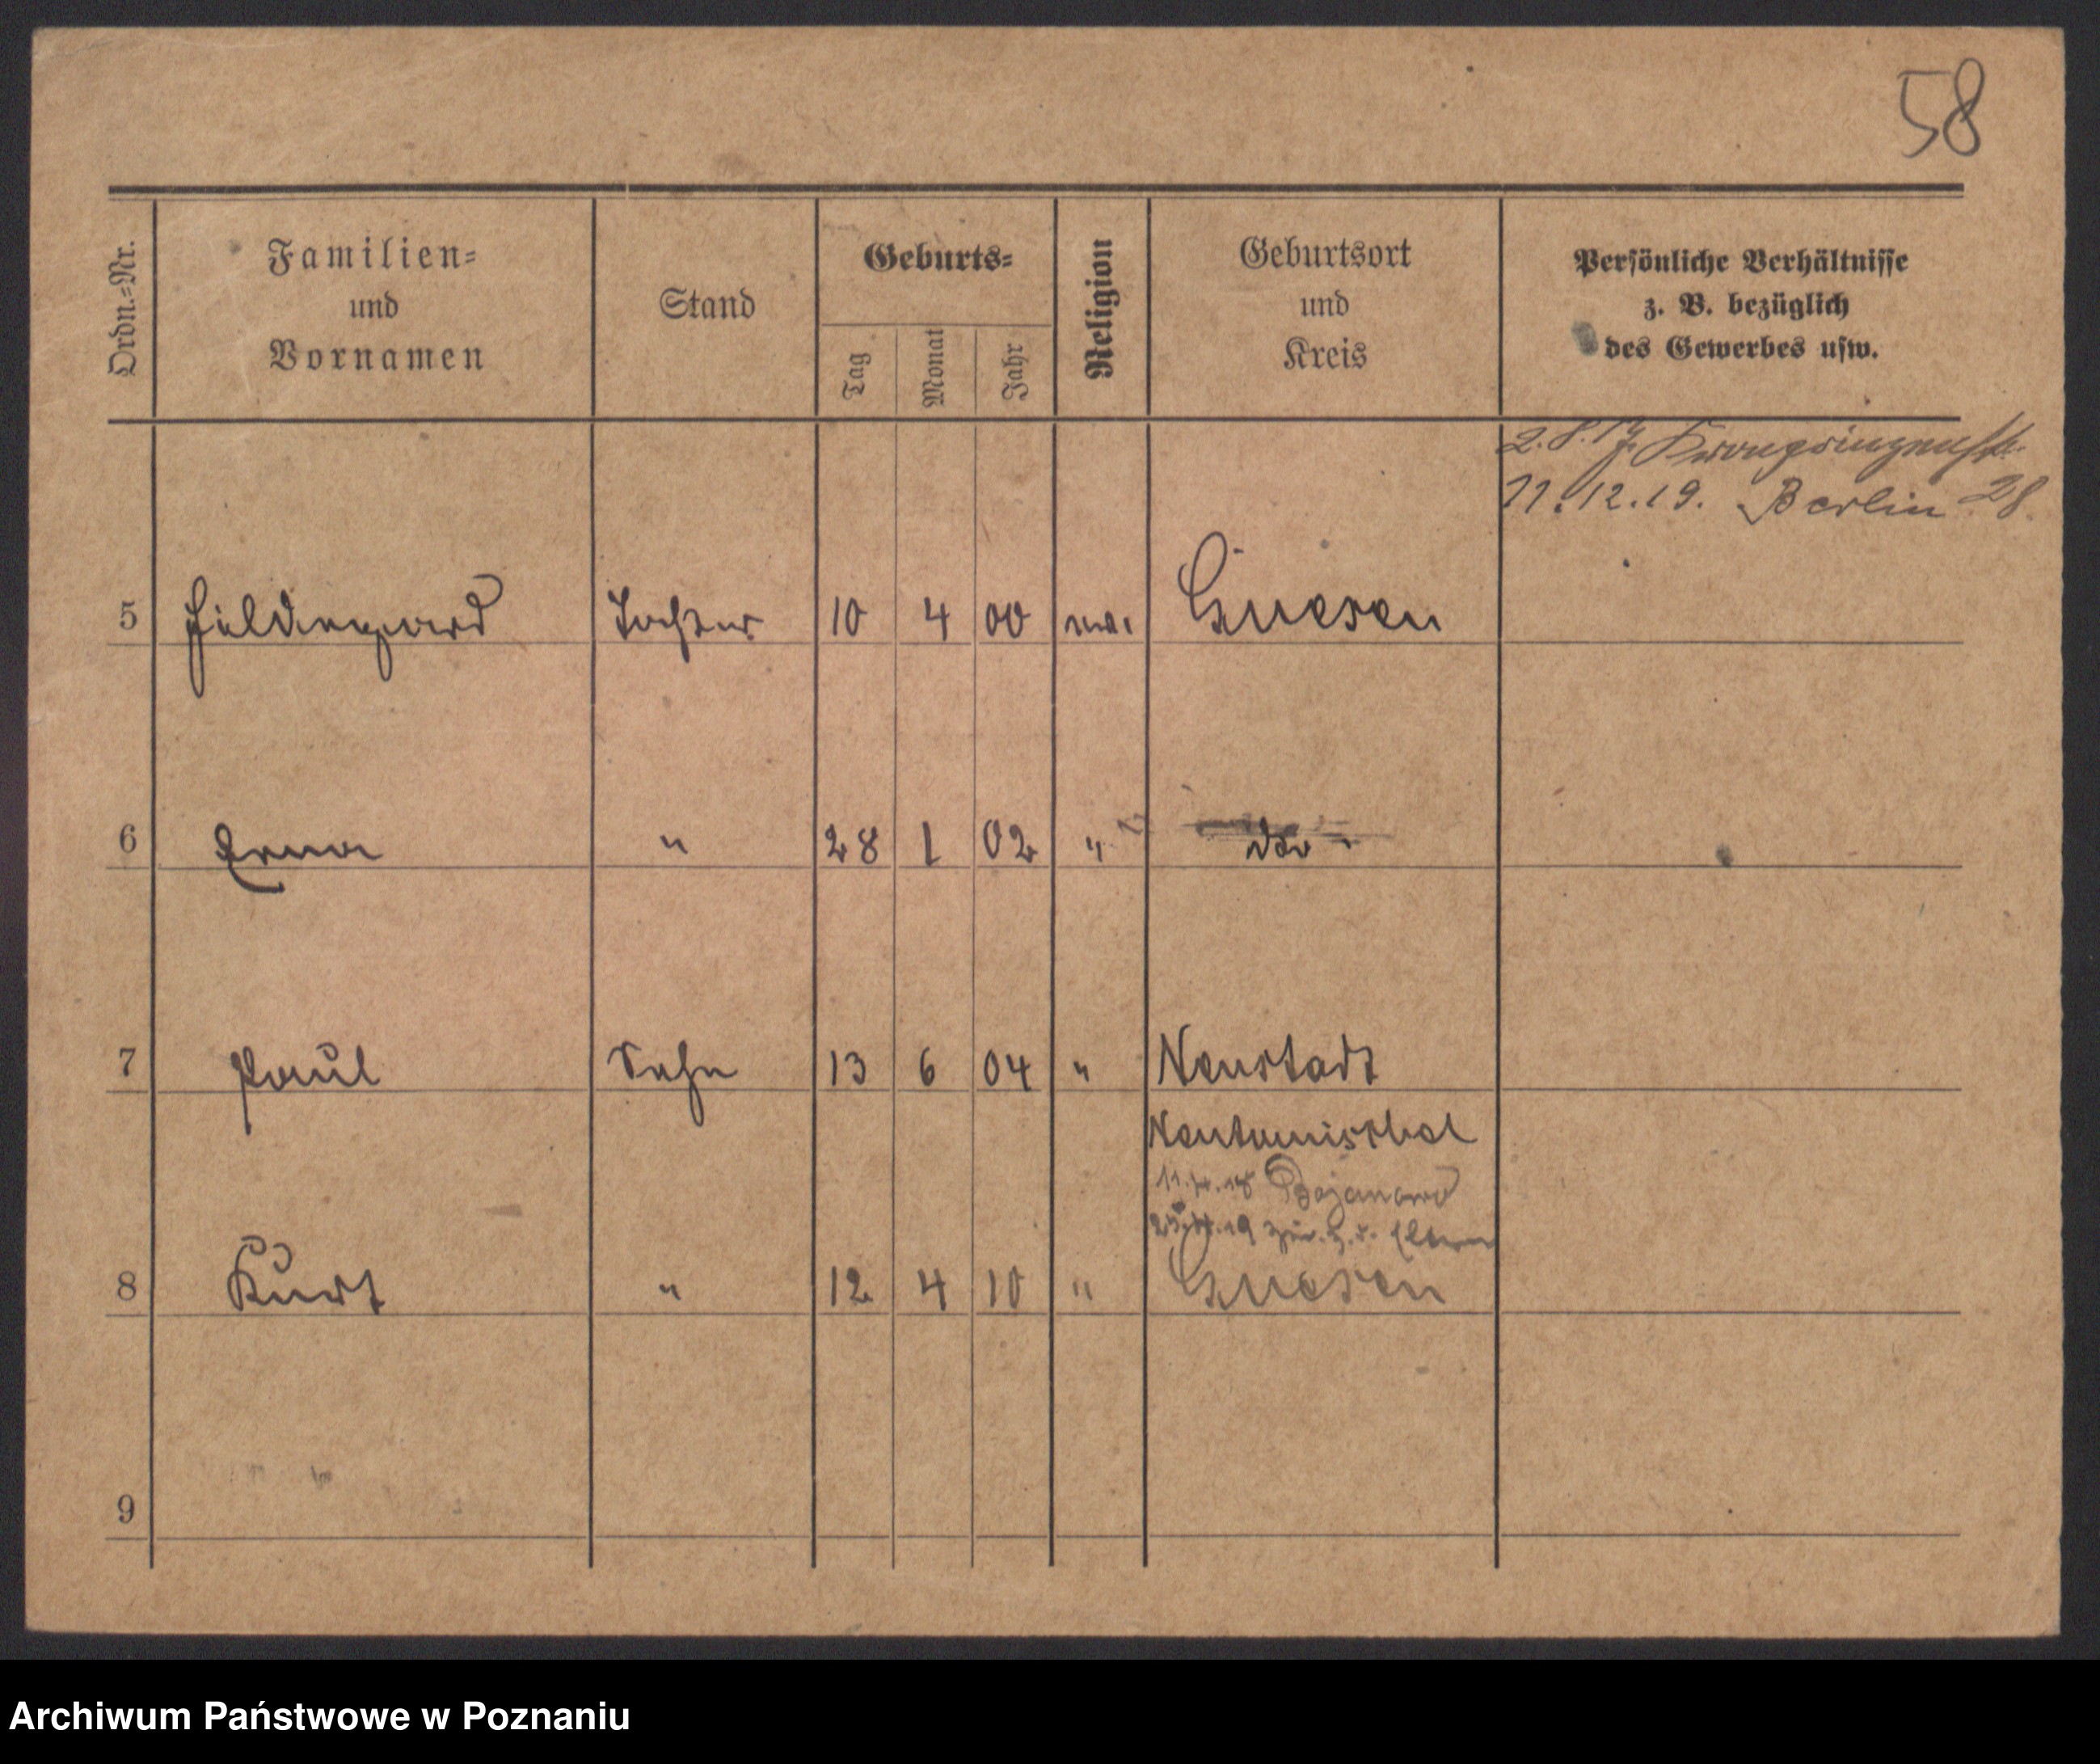 58
Ordn.=Nr. Familien= und Vornamen Stand Geburts= Tag Monat Jahr Religion Geburtsort und Kreis Persönliche Verhältnisse z. B. bezüglich des Gewerbes usw.
2. 8. 17
11. 12. 19. Berlin 28.
5 Hildegard Tochter 10 4 00 ev. Gnesen
6 Erna " 28 1 02 " do
7 Paul Sohn 13 6 04 " Neustadt
Neutomischel
Bojanowo
19 zur. z. d. Eltern
8 Kurt " 12 4 10 " Gnesen
9
Archiwum Państwowe w Poznaniu